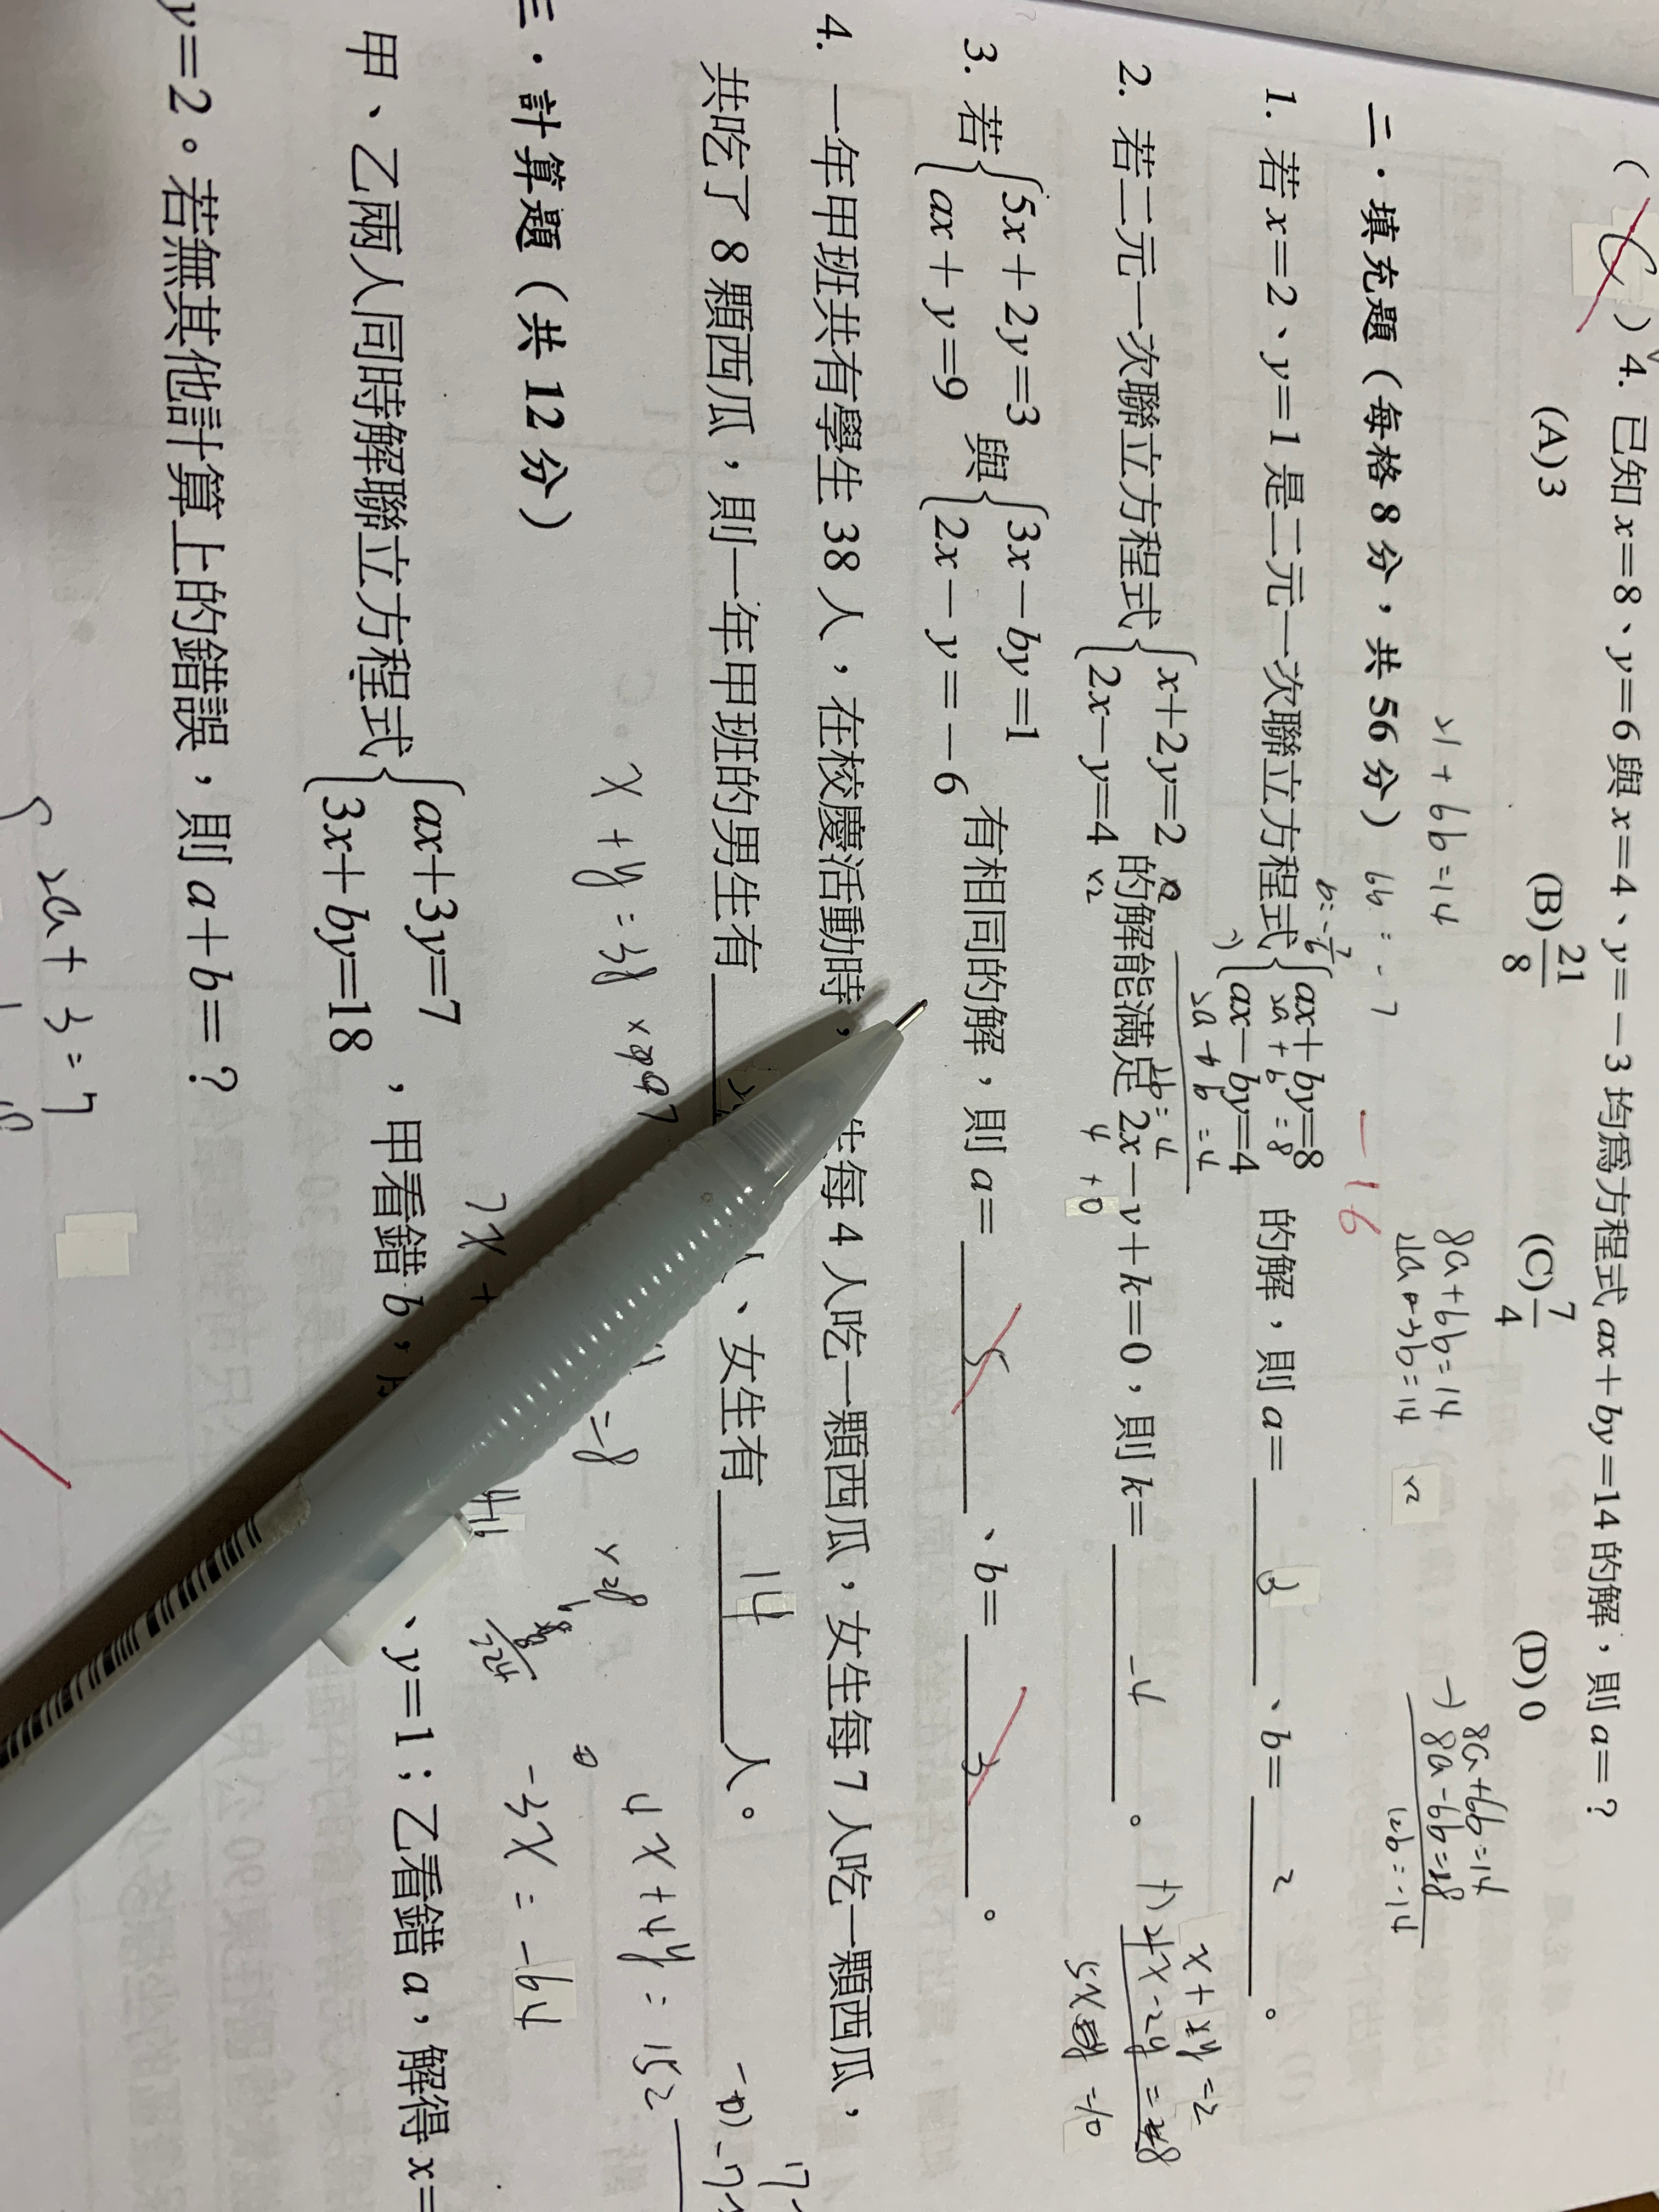 ( C ) 4. 已知 x=8、y=6 與 x=4、y=-3 均為方程式 ax+by=14 的解，則 a=？
(A)3 (B)21/8 (C)7/4 (D)0
21+6b=14
6b=-7
b=-7/6
8a+6b=14
4a-3b=14 x2
8a+6b=14
-) 8a-6b=28
12b=-14
二．填充題（每格 8 分，共 56 分） -16
1. 若 x=2、y=1 是二元一次聯立方程式 { ax+by=8
ax-by=4 的解，則 a= 3 、b= 2 。
2a+b=8
2. 若二元一次聯立方程式 { x+2y=2
2x-y=4 的解能滿足 2x-y+k=0，則 k= -4 。
x2
4 +0
3. 若 { 5x+2y=3
ax+y=9 與 { 3x-by=1
2x-y=-6 有相同的解，則 a= 5 、b= 3 。
4. 一年甲班共有學生 38 人，在校慶活動時， 生每 4 人吃一顆西瓜，女生每 7 人吃一顆西瓜，
共吃了 8 顆西瓜，則一年甲班的男生有 人、女生有 14 人。
x+y=38
=8
x28
4x+4y=152
-3x=-
三．計算題（共 12 分）
甲、乙兩人同時解聯立方程式 { ax+3y=7
3x+by=18 ，甲看錯 b， 、y=1；乙看錯 a，解得 x=
y=2。若無其他計算上的錯誤，則 a+b=？
2a+3=7